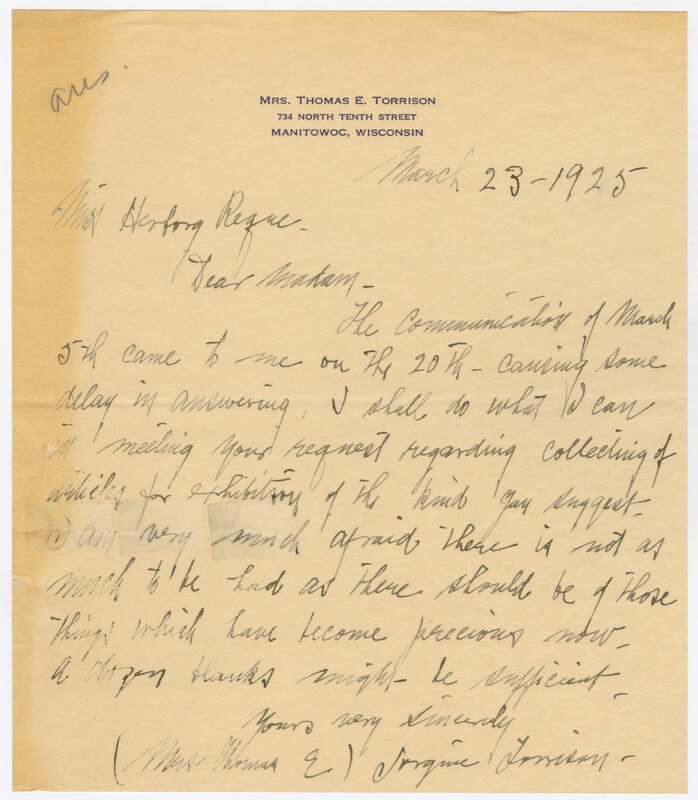 ans.
MRS. THOMAS E. TORRISON
734 NORTH TENTH STREET
MANITOWOC, WISCONSIN
March 23-1925
Miss Herborg Reque.
Dear Madam-
The communication of March
5th came to me on the 20th - causing some
delay in answering. I shall do what I can
in meeting your request regarding collecting of
articles for exhibition of the kind you suggest-
I am very much afraid there is not as
much to be had as there should be of those
things which have become precious now-
A dozen blanks might be sufficient-
Yours very sincerely
(Mrs Thomas E.) Jorgine Torrison-